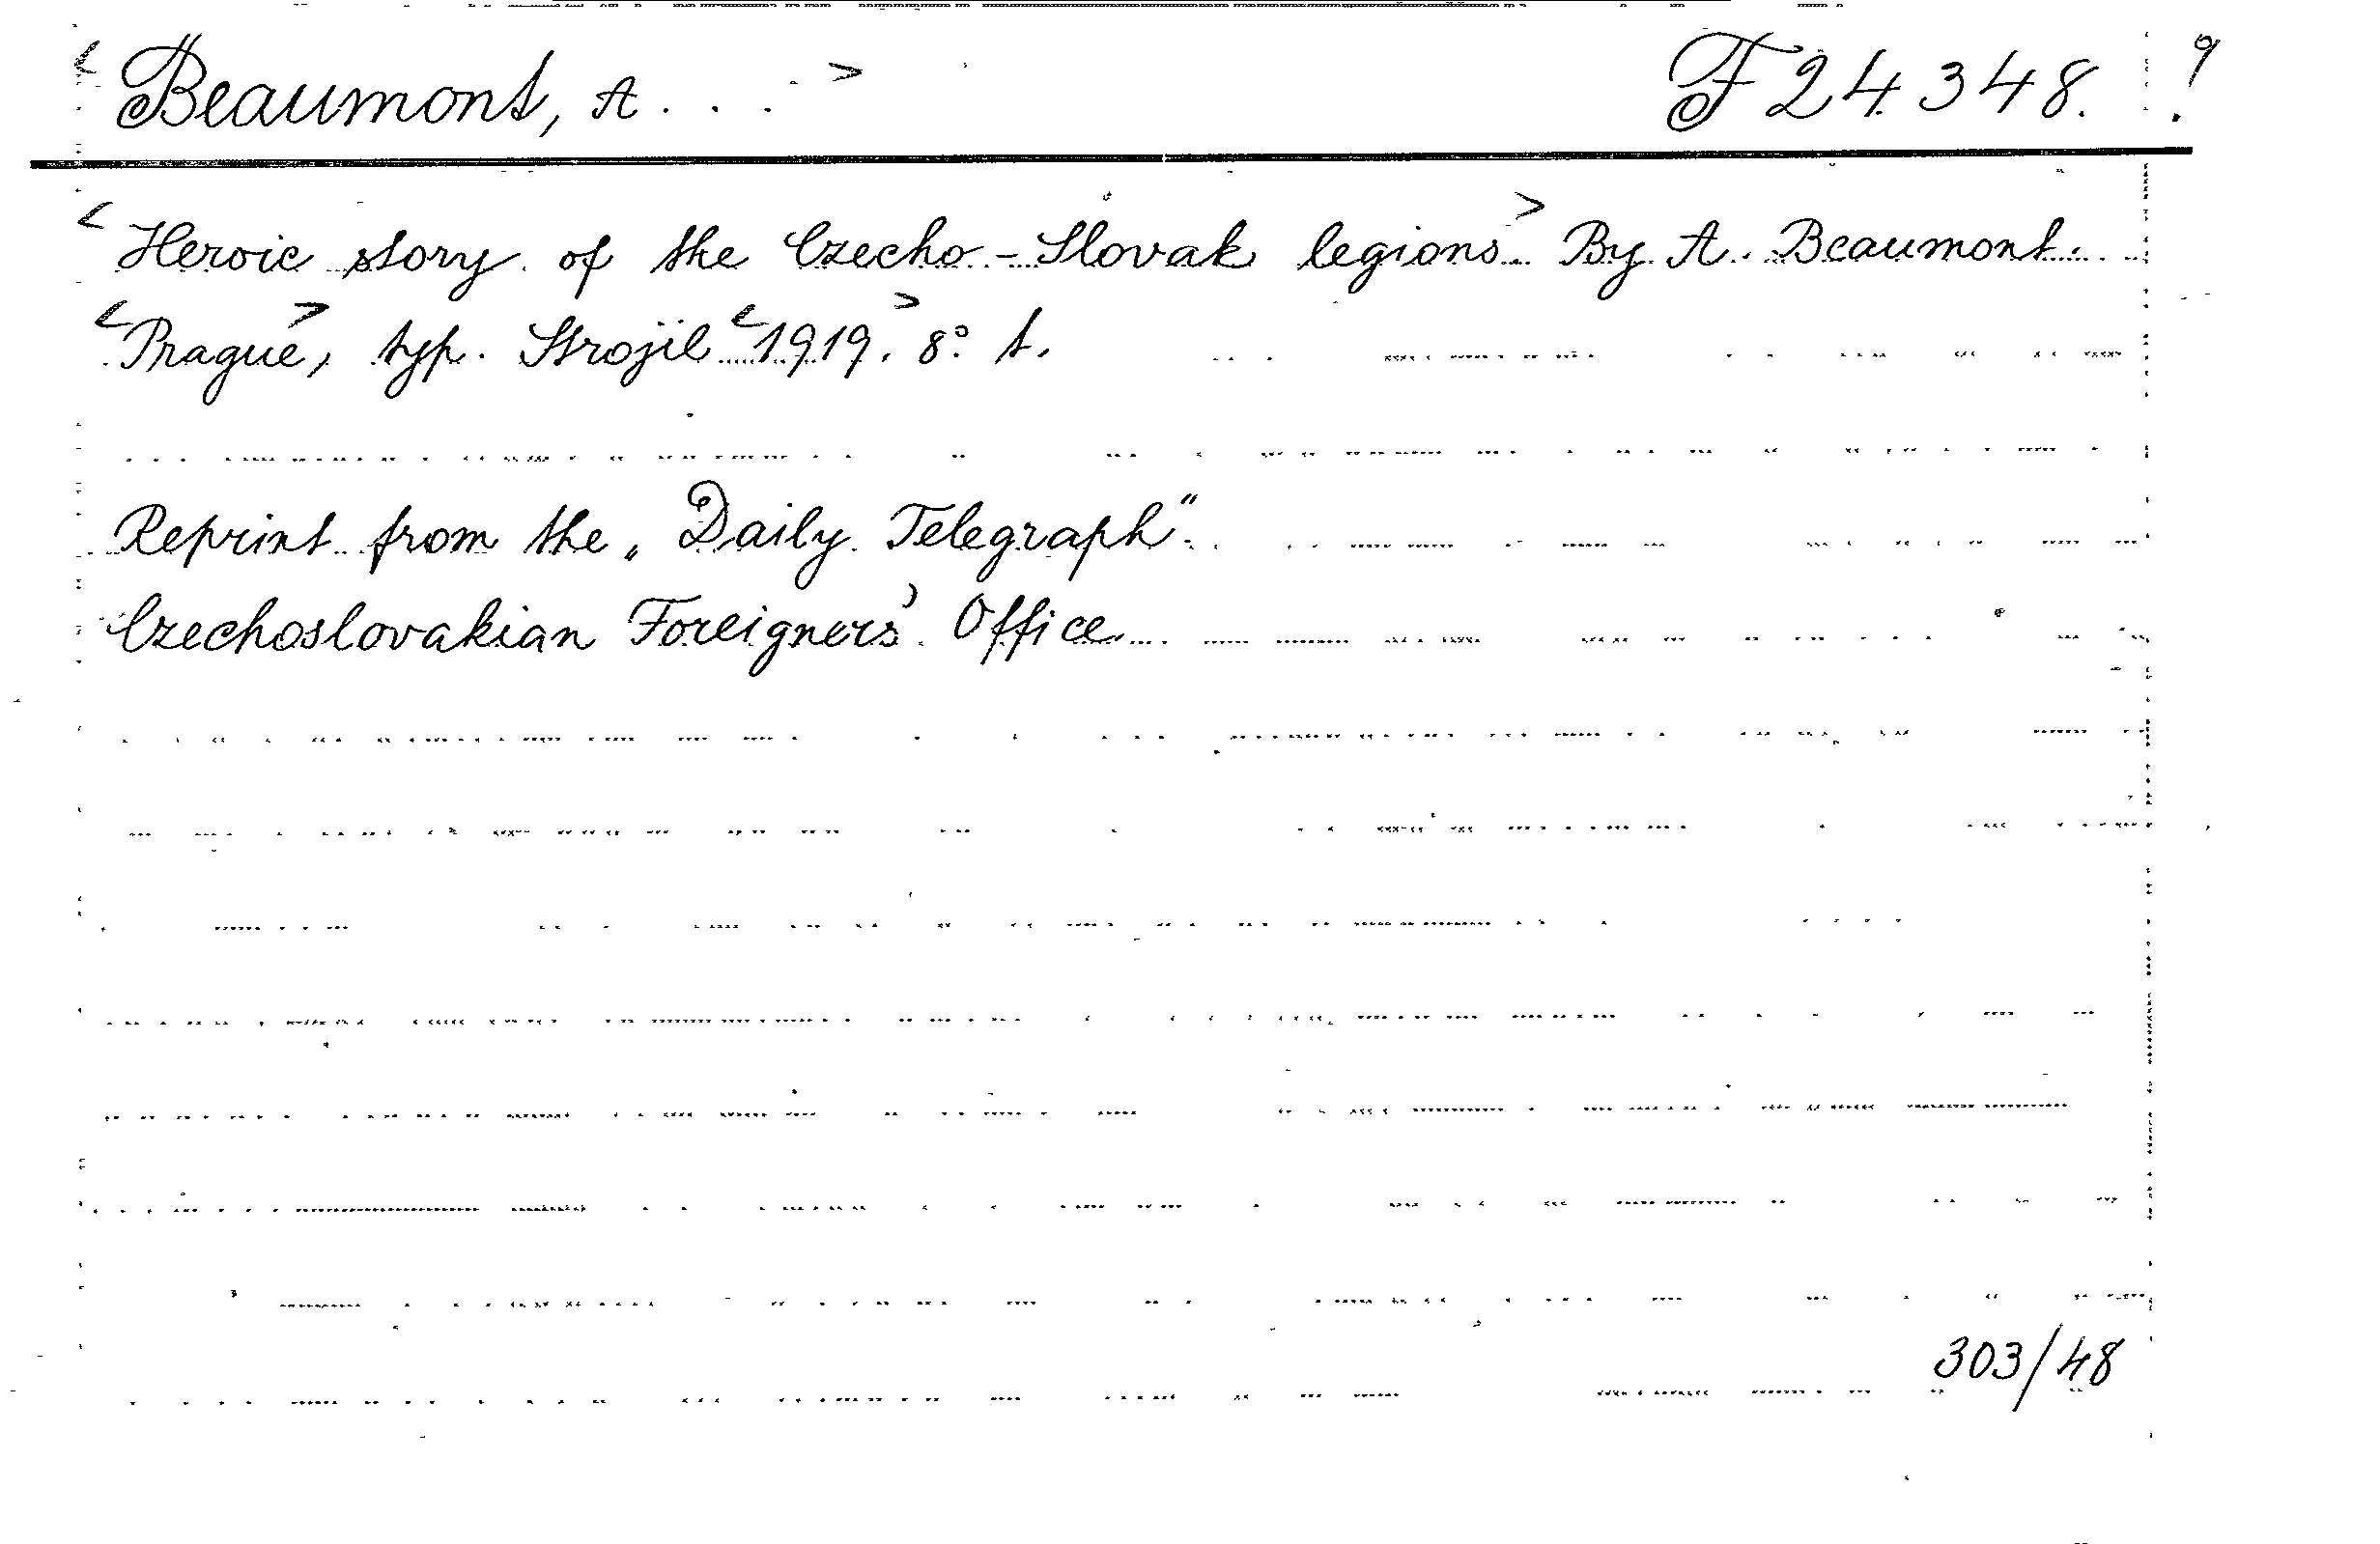 < Beaumont, A. . . > F 24.348. 9
< Heroic story of the Czecho-Slovak legions. > By A. Beaumont.
< Prague >, typ. Strojil < 1919. > 8° t.
Reprint from the „Daily Telegraph“.
Czechoslovakian Foreigners' Office.
303/48